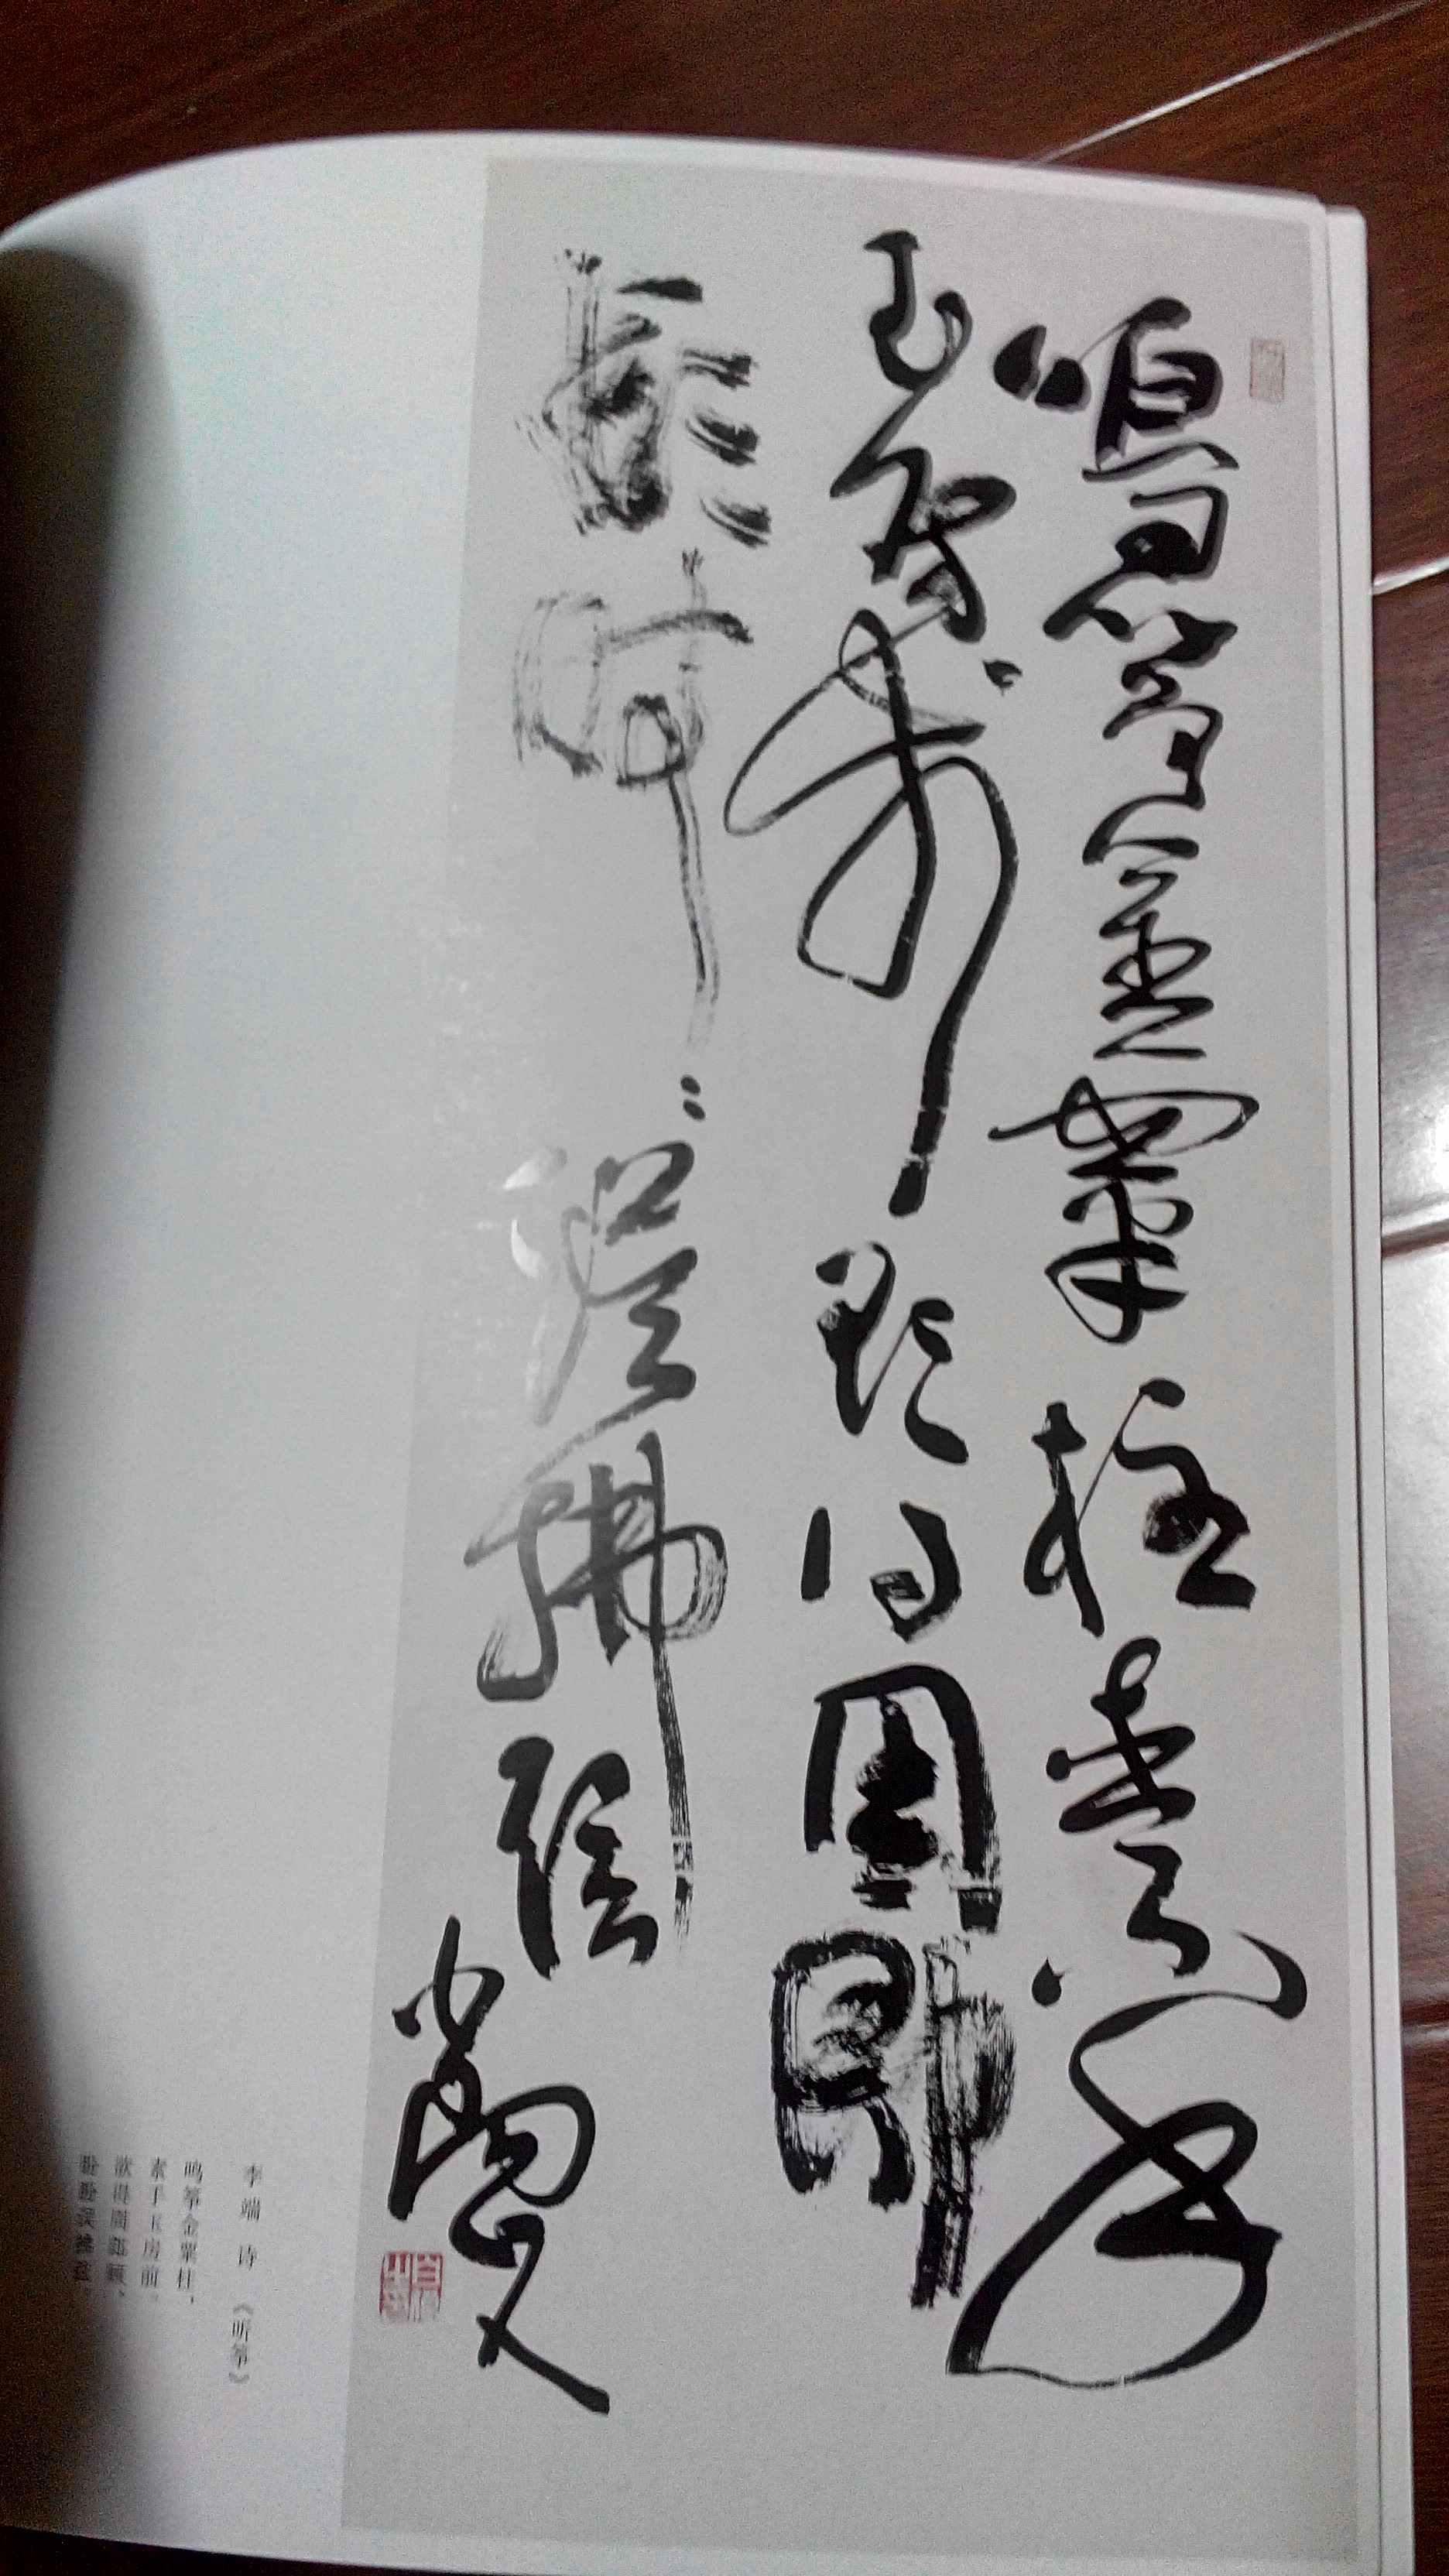 鳴箏金粟柱素手
玉房前欲得周郎
顧時：誤拂弦
李端诗《听筝》
鸣筝金粟柱，
素手玉房前。
欲得周郎顾，
时时误拂弦。